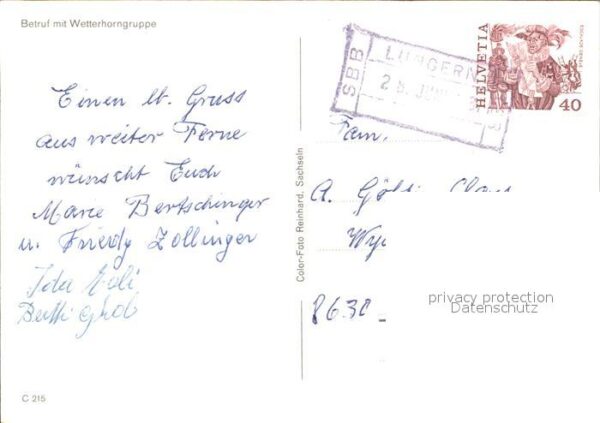 Betruf mit Wetterhorngruppe
Einen lb. Gruss
aus weiter Ferne
wünscht Euch
Marce Bertschinger
u. Friedy Zollinger
Ida
Berthi
C 215
Color-Foto Reinhard, Sachseln
SBB
LUNGERN
HELVETIA
40
Fam.
A. Göldi
8630
privacy protection
Datenschutz